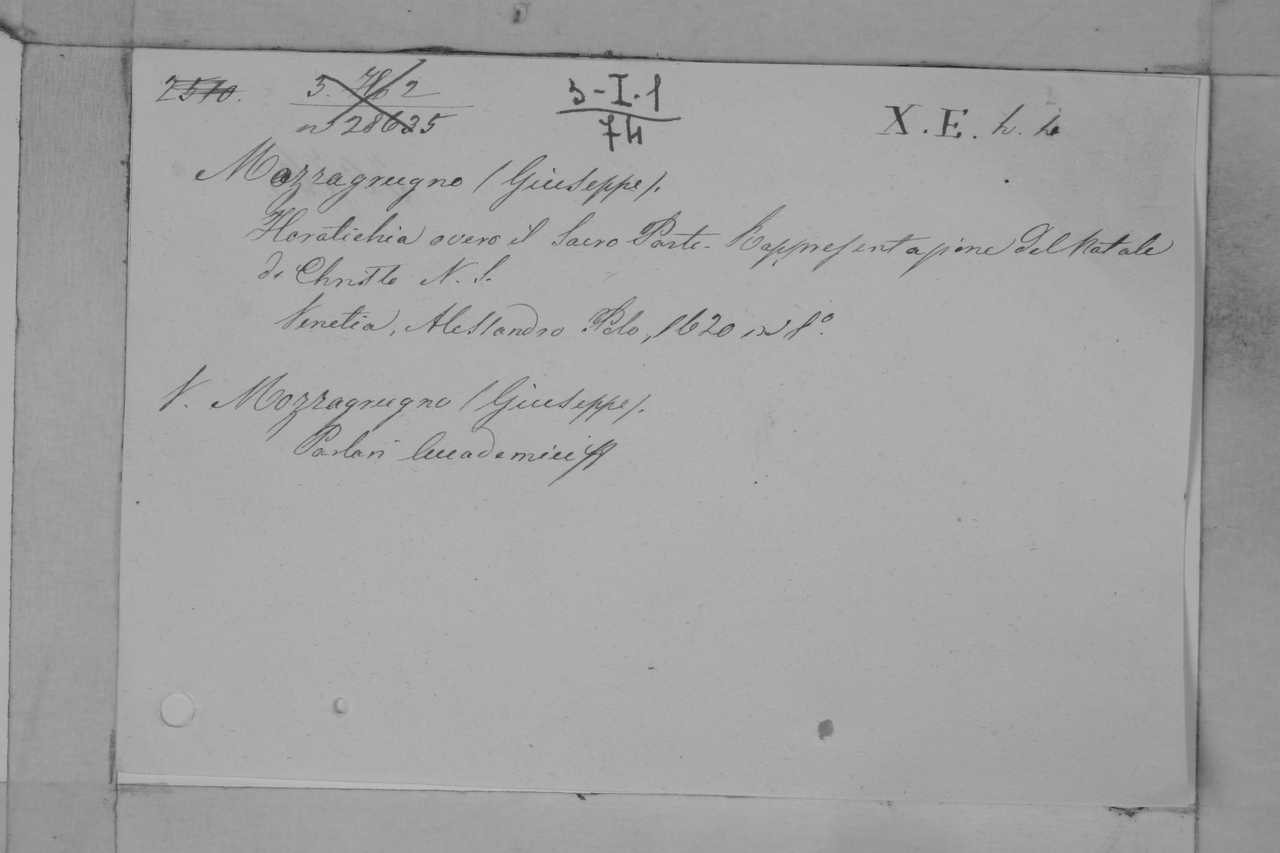 2510.
3. H/2
n 28625
3-I.1
74
X.E. h. h
Mozzagrugno (Giuseppe).
Horatichia overo il Sacro Parto - Rappresentazione del Natale
di Christo N. S.
Venetia, Alessandro Polo, 1620 in 8°.
V. Mozzagrugno (Giuseppe).
Parlari Accademici